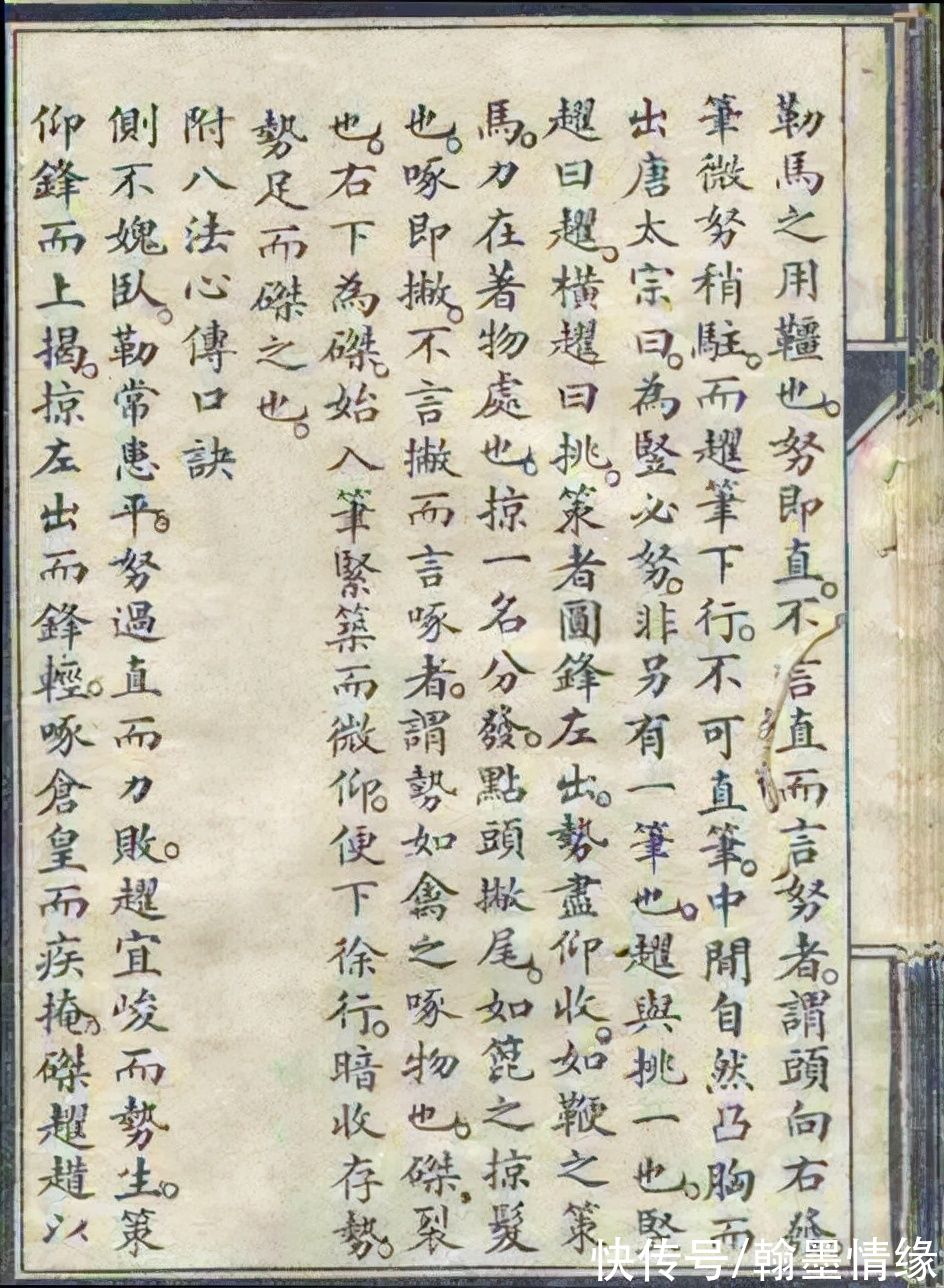 勒馬之用韁也。努即直。不言直而言努者。謂頭向右發
筆微努稍駐。而趯筆下行。不可直筆。中間自然凸胸而
出唐太宗曰。為豎必努。非另有一筆也。趯與挑一也。豎
趯曰趯。橫趯曰挑。策者圓鋒左出。勢盡仰收。如鞭之策
馬。力在著物處也。掠一名分發。點頭撇尾。如篦之掠髮
也。啄即撇。不言撇而言啄者。謂勢如禽之啄物也。磔裂
也。右下為磔。始入筆緊築而微仰。便下徐行。暗收存勢。
勢足而磔之也。
附八法心傳口訣
側不媿臥。勒常患平。努過直而力敗。趯宜峻而勢生。策
仰鋒而上揭。掠左出而鋒輕。啄倉皇而疾掩。磔趯趞以
快传号/翰墨情缘